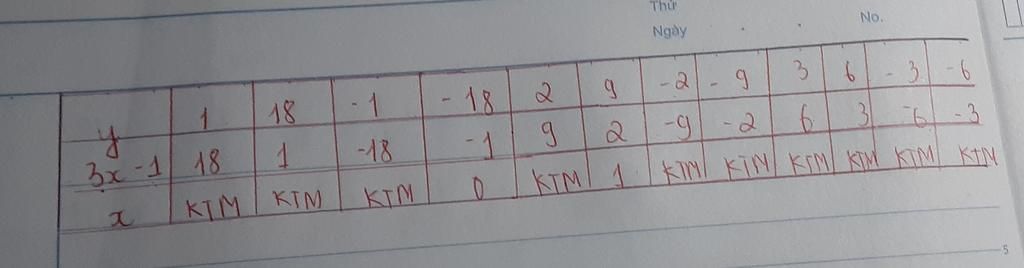 Thứ
Ngày No.
y 1 18 -1 -18 2 9 -2 -9 3 6 -3 -6
3x-1 18 1 -18 -1 9 2 -9 -2 6 3 -6 -3
x KTM KTM KTM 0 KTM 1 KTM KTM KTM KTM KTM KTM
5